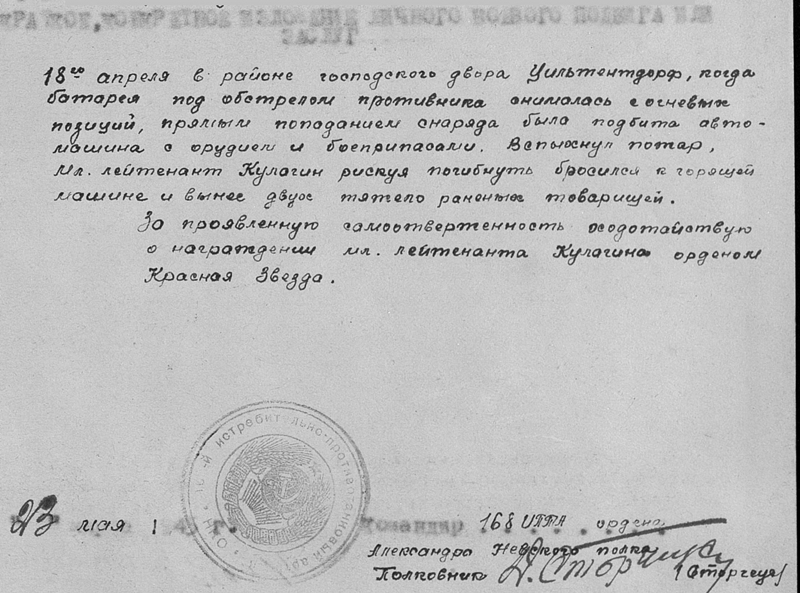 КРАТКОЕ, КОНКРЕТНОЕ ИЗЛОЖЕНИЕ ЛИЧНОГО БОЕВОГО ПОДВИГА ИЛИ
ЗАСЛУГ
18го апреля в районе господского двора Уильтентдорф, когда
батарея под обстрелом противника снималась с огневых
позиций, прямым попаданием снаряда была подбита авто-
машина с орудием и боеприпасами. Вспыхнул пожар,
мл. лейтенант Кулагин рискуя погибнуть бросился к горящей
машине и вынес двух тяжело раненых товарищей.
За проявленную самоотверженность ходотайствую
о награждении мл. лейтенанта Кулагина орденом
Красная Звезда.
истребительно-противотанковый
23 мая 1945 г. Командир 168 ИПТА ордена
Александра Невского полка
Полковник